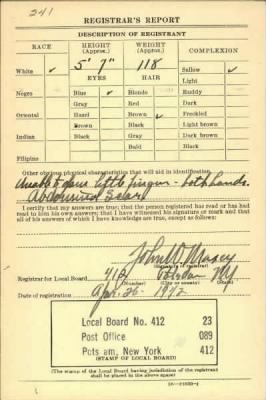 241
REGISTRAR'S REPORT
DESCRIPTION OF REGISTRANT
RACE HEIGHT (Approx.) WEIGHT (Approx.) COMPLEXION
White ✓ 5' 7" 118 Sallow ✓
EYES HAIR Light
Negro Blue ✓ Blonde Ruddy
Gray Red Dark
Oriental Hazel Brown ✓ Freckled
Brown Black Light brown
Indian Black Gray Dark brown
Bald Black
Filipino
Other obvious physical characteristics that will aid in identification
Unable to open little fingers - both hands.
Abdominal Scar
I certify that my answers are true; that the person registered has read or has had
read to him his own answers; that I have witnessed his signature or mark and that
all of his answers of which I have knowledge are true, except as follows:
John W. Maxcy
Registrar for Local Board 412 Potsdam NY
Date of registration Apr. 26 - 1942
Local Board No. 412 23
Post Office 089
Pots am, New York 412
(STAMP OF LOCAL BOARD)
(The stamp of the Local Board having jurisdiction of the registrant
shall be placed in the above space.)